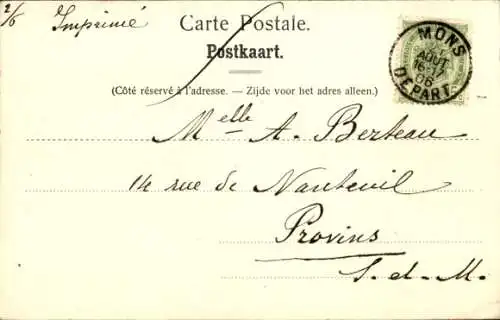 2/6 Imprimé
Carte Postale.
Postkaart.
(Côté réservé à l'adresse. – Zijde voor het adres alleen.)
MONS
AOUT
16-17
06
DEPART
Melle A. Berteau
14 rue de Nanteuil
Provins
S. d. M.